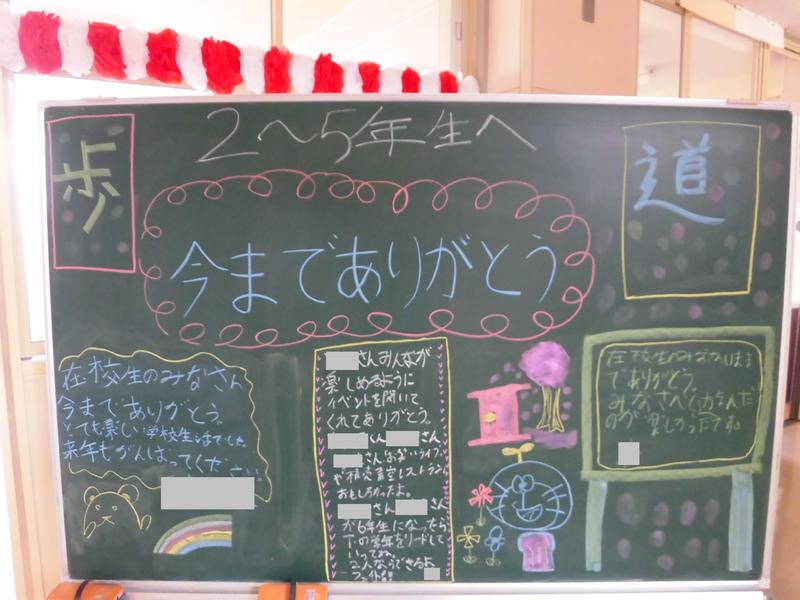 2〜5年生へ
歩
道
今までありがとう
在校生のみなさん
今までありがとう。
とても楽しい学校生活でした。
来年もがんばってください。
さんみんなが
楽しめるように
イベントを開いて
くれてありがとう。
くん さん
さんお笑いライブ
や 青空レストラン
おもしろかったよ。
さん さん
が6年生になったら
下の学年をリードして
いってね。
2人ならできるよ
ファイト!!
在校生のみなさんいまま
でありがとう。
みなさんと
のが楽しかったです。